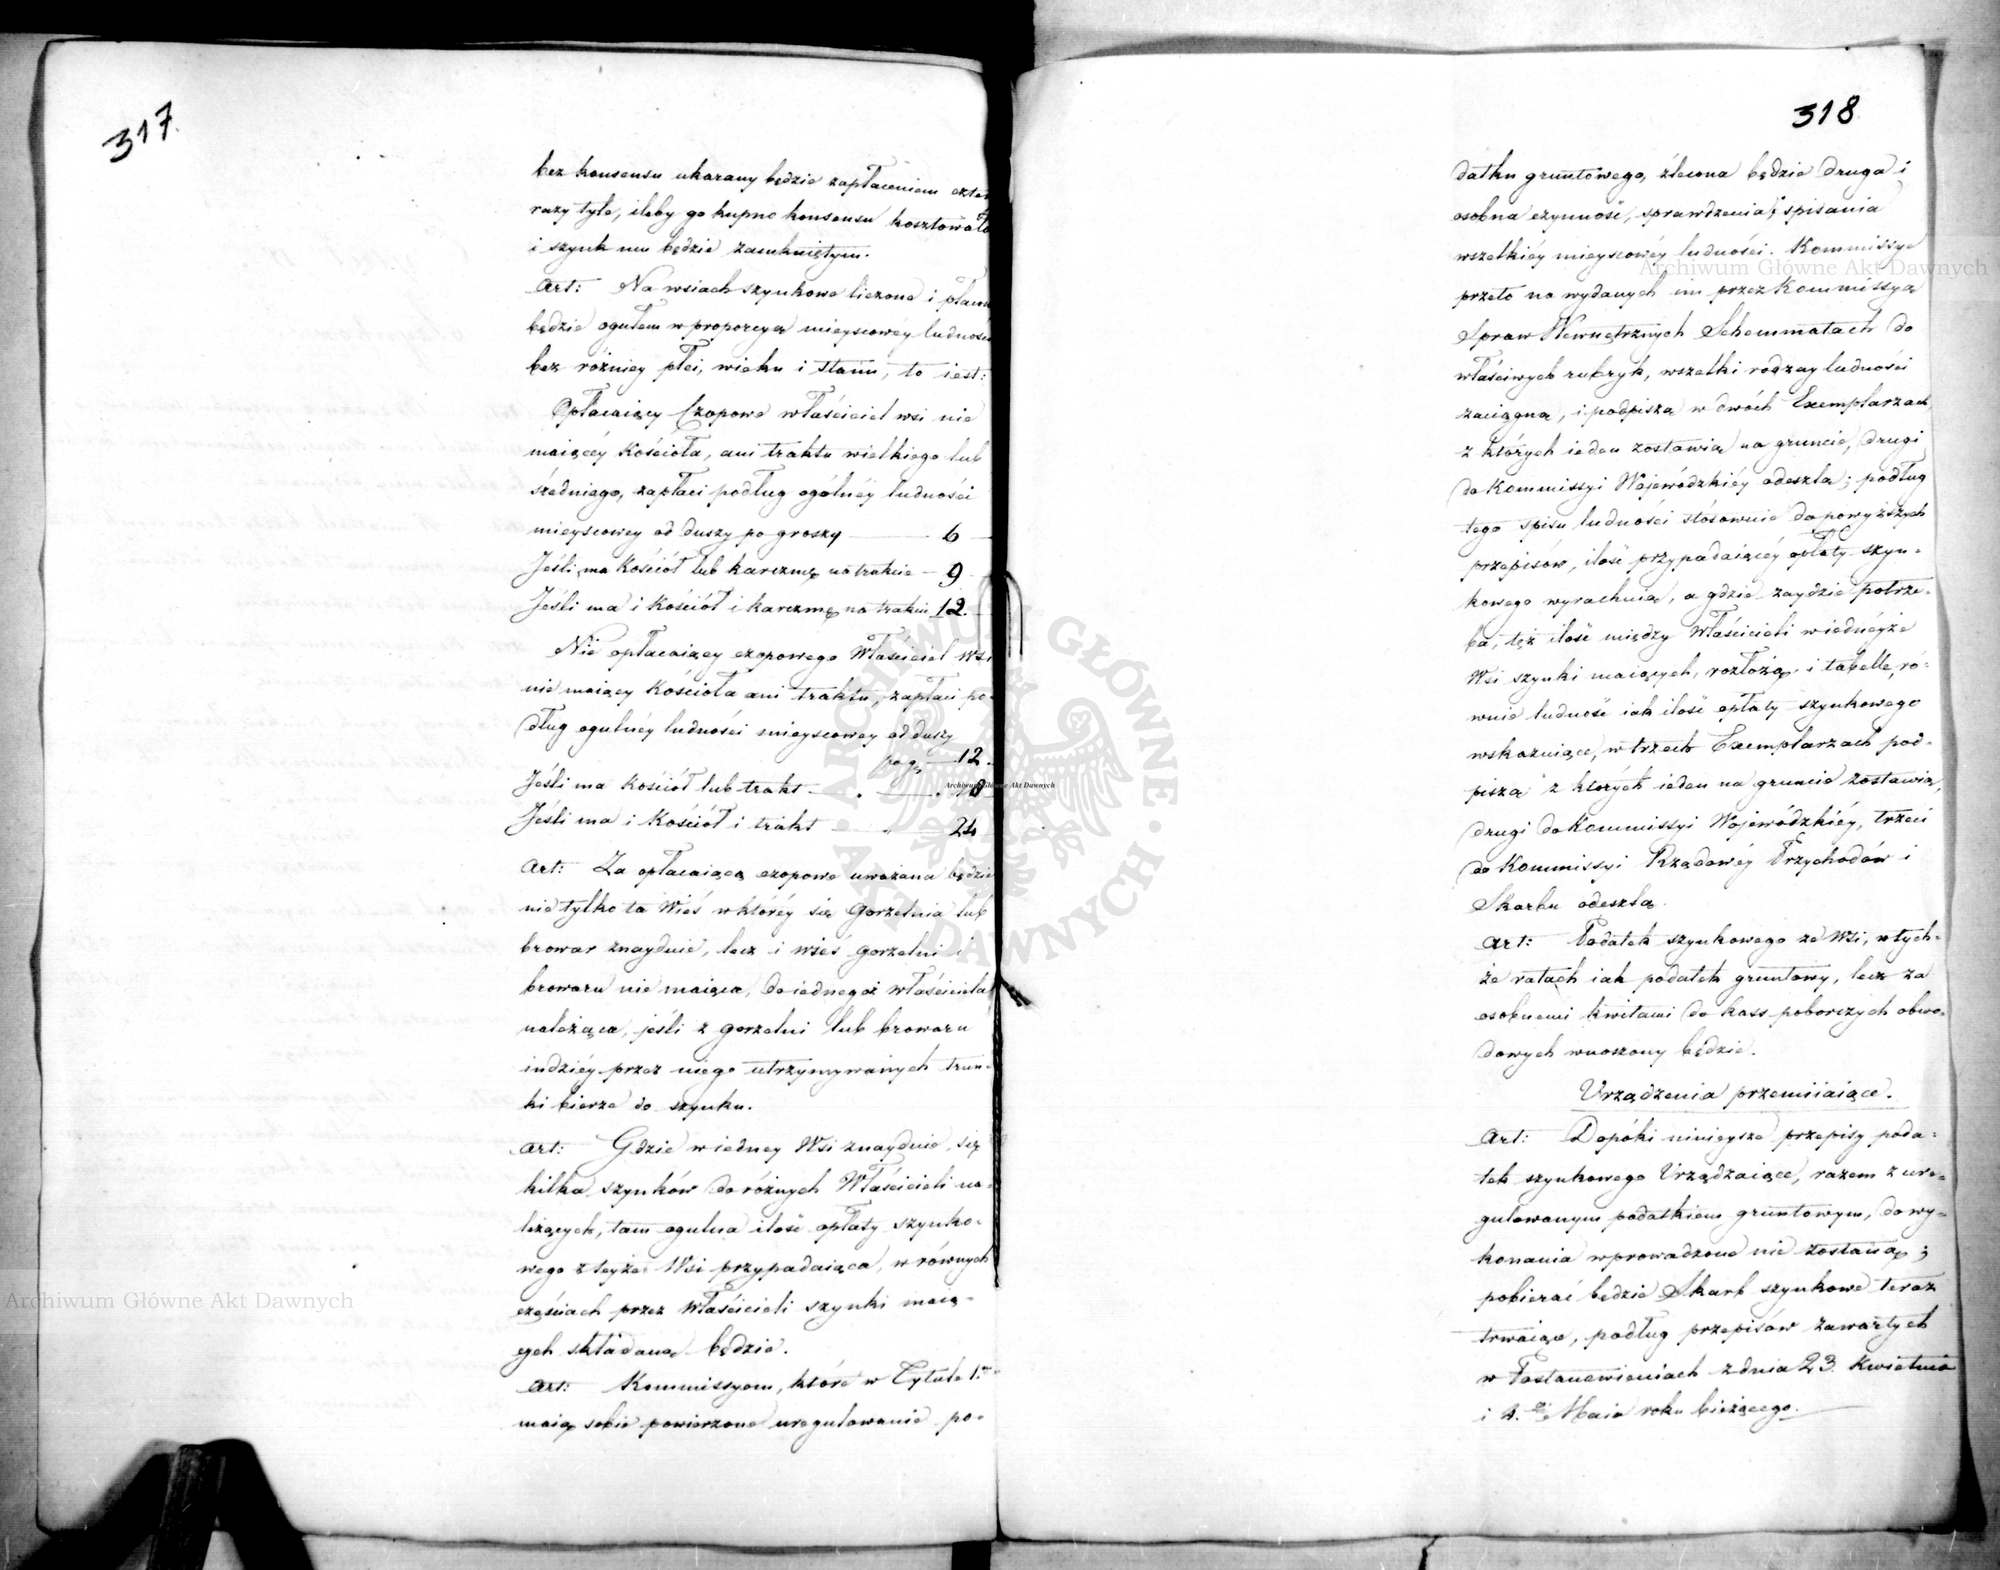 317.
bez konsensu ukarany będzie zapłaceniem czte
razy tyle, ileby go kupno konsensu kosztowało
i szynk mu będzie zamkniętym.
Art: Na wsiach szynkowe liczone i płacone
będzie ogułem w proporcyą mieyscowéy ludności
bez różnicy płci, wieku i stanu, to iest:
Opłacaiący Czopowe właściciel wsi nie
maiącéy Kościoła, ani traktu wielkiego lub
średniego, zapłaci podług ogólnéy ludności
mieyscowey od duszy po groszy — 6 —
Jeśli ma Kościół lub karczmę na trakcie — 9
Jeśli ma i Kościół i karczmę na trakcie 12.
Nie opłacaiący czopowego Właściciel wsi
nie maiący Kościoła ani traktu, zapłaci po-
dług ogulnéy ludności mieyscowey od duszy
po g. — 12 —
Jeśli ma Kościół lub trakt — . — . 18
Jeśli ma i Kościół i trakt — „ — 24
Art: Za opłacaiącą czopowe uważana będzie
nie tylko ta Wieś w któréy się Gorzelnia lub
browar znayduie, lecz i wieś gorzelni i
browaru nie maiąca, do iednegoż właściciela
należąca, jeśli z gorzelni lub browaru
indziéy przez niego utrzymywanych trun-
ki bierze do szynku.
Art: Gdzie w iedney Wsi znayduie się
kilka szynków do różnych Właścicieli na-
leżących, tam ogulna ilość opłaty szynko-
wego z teyże Wsi przypadaiąca, w równych
częściach przez Właścicieli szynki maią-
cych składaną będzie.
Art: Kommissyom, które w Tytule 1.
maią sobie powierzone uregulowanie po-
318
datku gruntowego, zlecona będzie druga i
osobna czynność, sprawdzenia i spisania
wszelkiéy mieyscowéy ludności. Kommissye
przeto na wydanych im przez Kommissyą
Spraw Wewnętrznych Schemmatach do
właściwych rubryk, wszelki rodzay ludności
zaciągną, i podpiszą w dwóch Exemplarzach
z których ieden zostawią na gruncie, drugi
do Kommissyi Wojewódzkiéy odeszlą; podług
tego spisu ludności stósownie do powyższych
przepisów, ilość przypadaiącéy opłaty szyn-
kowego wyrachuią, a gdzie zaydzie potrze-
ba, też ilość między Właścicieli w iednéyże
Wsi szynki maiących, rozłożą i tabelle, ró-
wnie ludność iak ilość opłaty szynkowego
wskazuiące, w trzech Exemplarzach pod-
piszą z których ieden na gruncie zostawią,
drugi do Kommissyi Wojewódzkiéy, trzeci
do Kommissyi Rządowéy Przychodów i
Skarbu odeszlą.
Art: Podatek szynkowego ze Wsi, w tych-
że ratach iak podatek gruntowy, lecz za
osobnemi kwitami do kass poborczych obwo-
dowych wnoszony będzie.
Urządzenia przemiiaiące.
Art: Dopóki ninieysze przepisy poda-
tek szynkowego Urządzaiące, razem z ure-
gulowanym podatkiem gruntowym, do wy-
konania wprowadzone nie zostaną;
pobierać będzie Skarb szynkowe teraz
trwaiące, podług przepisów zawartych
w Postanowieniach z dnia 23 Kwietnia
i 4. Maia roku bieżącego.
Archiwum Główne Akt Dawnych
Archiwum Główne Akt Dawnych
Archiwum Główne Akt Dawnych
ARCHIWUM GŁÓWNE AKT DAWNYCH